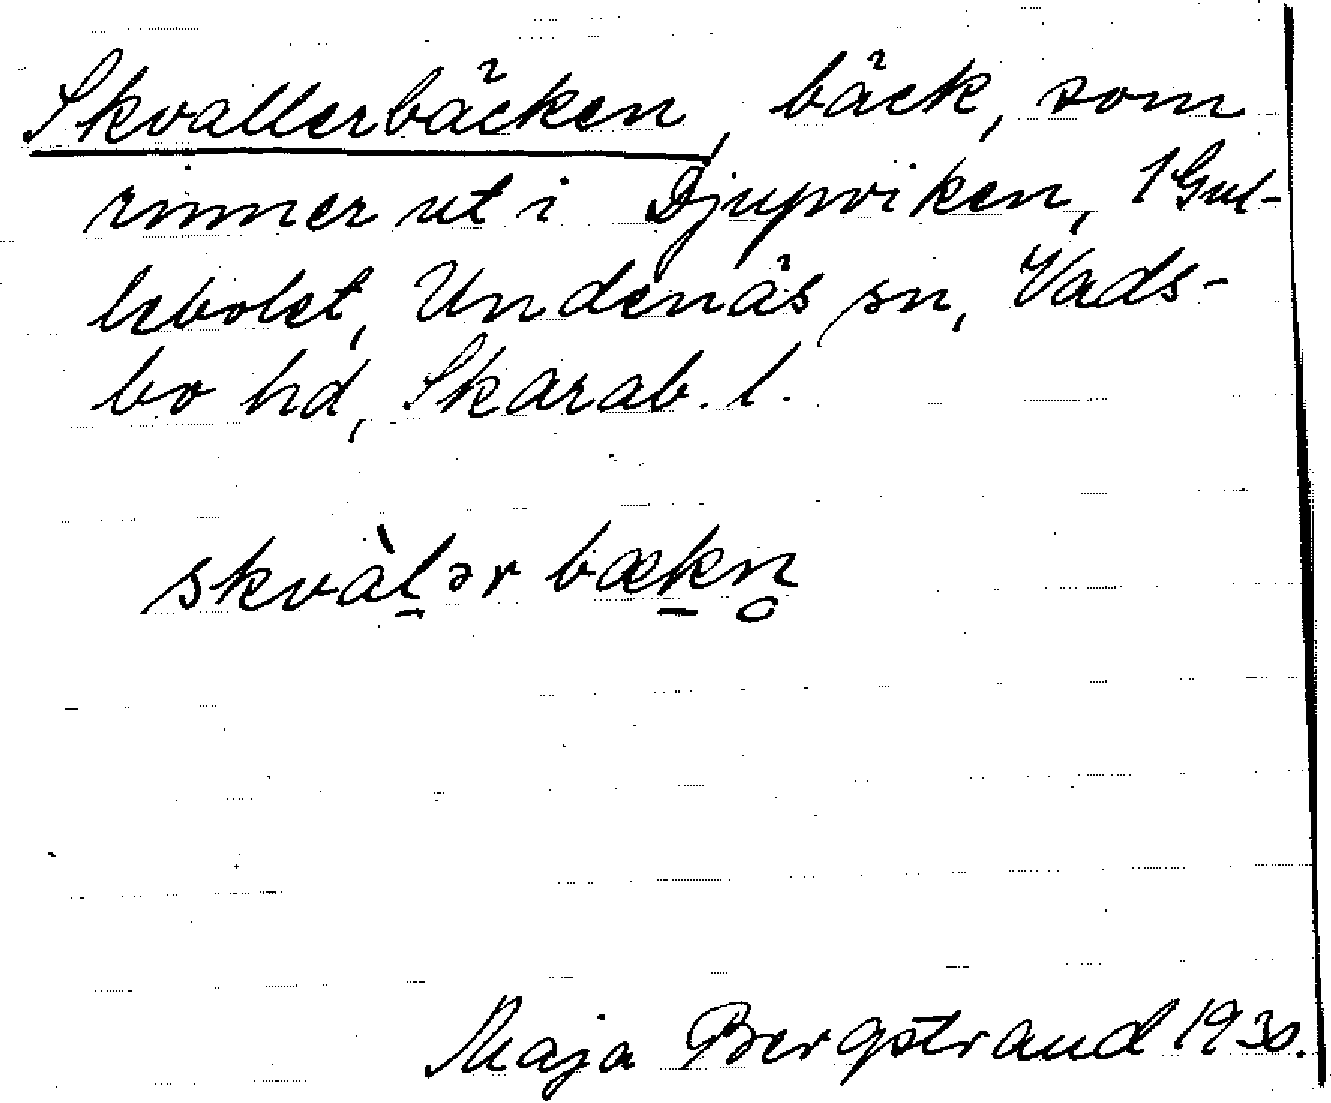 Skvallerbäcken, bäck, som
rinner ut i Djupviken, 1 Gul-
lebolet, Undenäs sn, Vads-
bo hd, Skarab. l.
skvàl̠ər bæk̠n̥
Maja Bergstrand 1930.